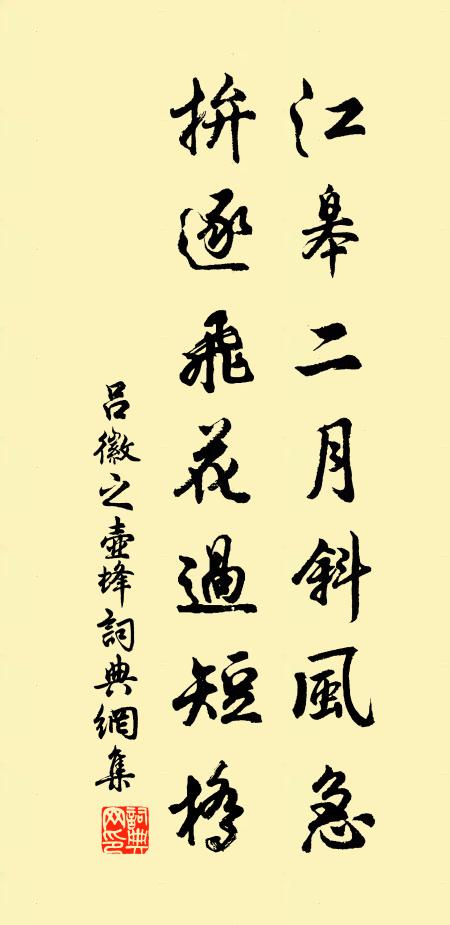 江皋二月斜風急
拚逐飛花過短橋
呂徽之壺蜂詞典網集
詞典網印